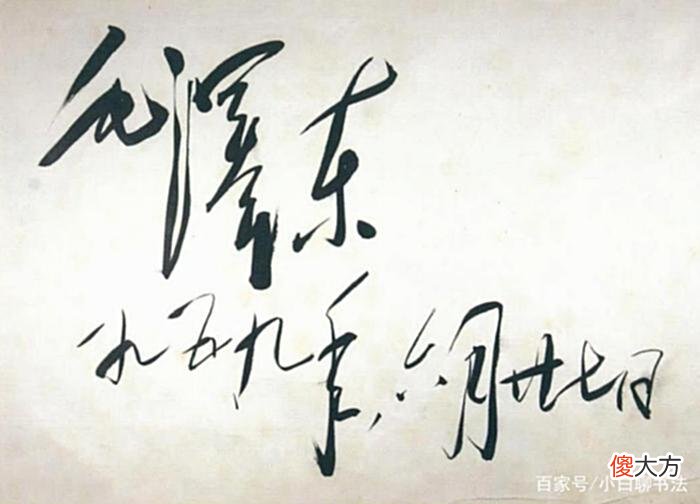 毛泽东
一九五九年,六月廿七日
傻大方
百家号/小白聊书法